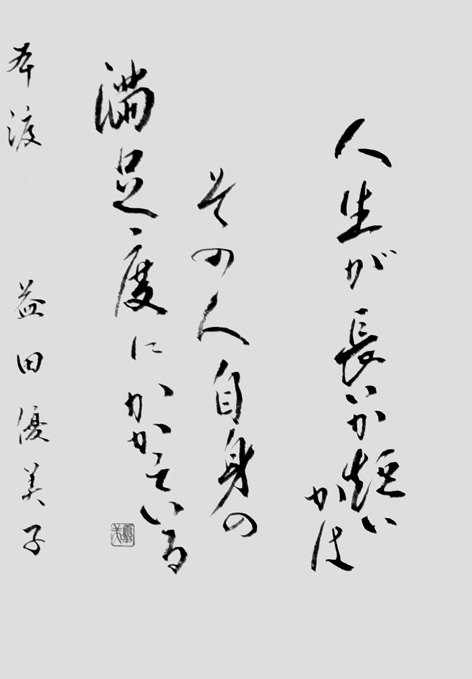 人生が長いか短い
かは
その人自身の
満足度にかかっている
本渡 益田優美子